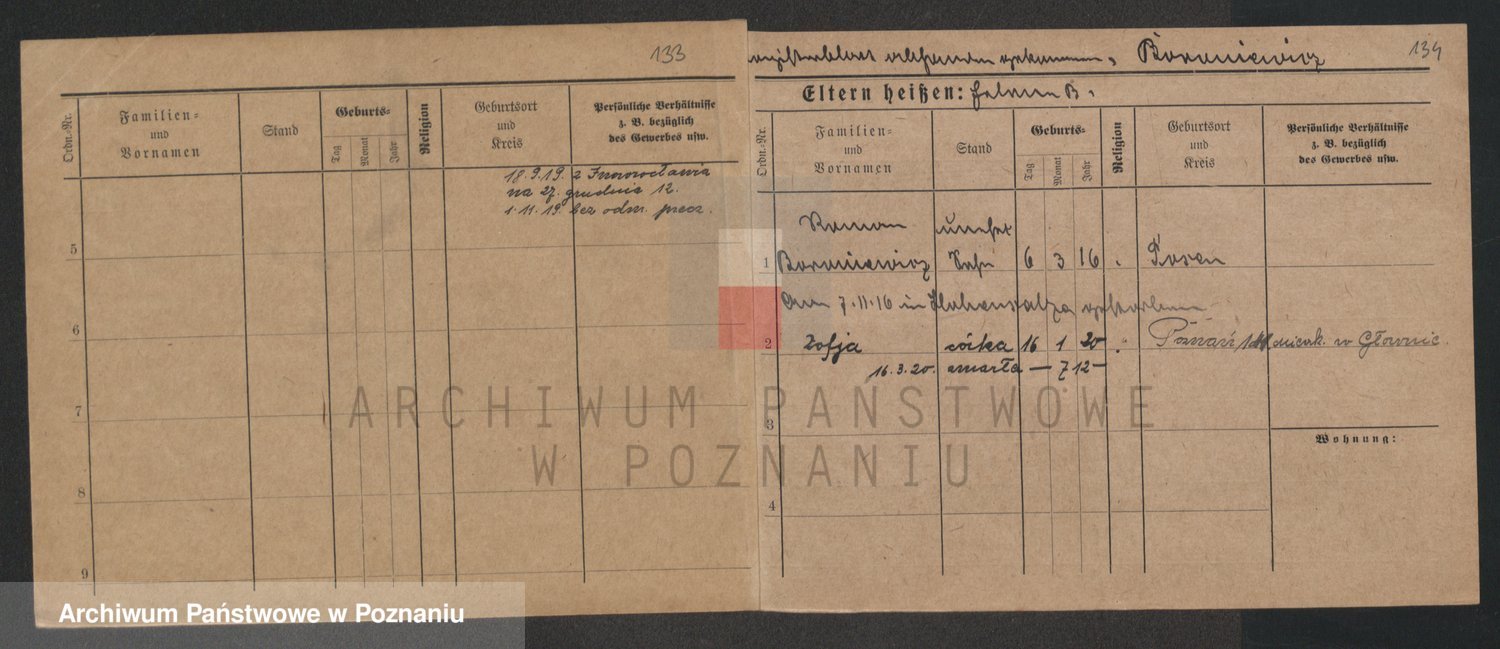 133
Ordn.-Nr.
Familien-
und
Vornamen
Stand
Geburts-
Tag
Monat
Jahr
Religion
Geburtsort
und
Kreis
Persönliche Verhältnisse
z. B. bezüglich
des Gewerbes usw.
18.9.19. z Inowrocławia
na 27. grudnia 12.
1.11.19. bez odm. prac.
5
6
7
8
9
134
Boroniewicz
Eltern heißen:
Ordn.-Nr.
Familien-
und
Vornamen
Stand
Geburts-
Tag
Monat
Jahr
Religion
Geburtsort
und
Kreis
Persönliche Verhältnisse
z. B. bezüglich
des Gewerbes usw.
Roman unehel
1 Boroniewicz Sohn 6 3 16 Posen
Am 7.11.16 in Hohensalza gestorben
2 Zofja córka 16 1 20 Poznań w Głównie.
16.3.20. zmarła — 7 12 —
3
Wohnung:
4
ARCHIWUM PAŃSTWOWE
W POZNANIU
Archiwum Państwowe w Poznaniu